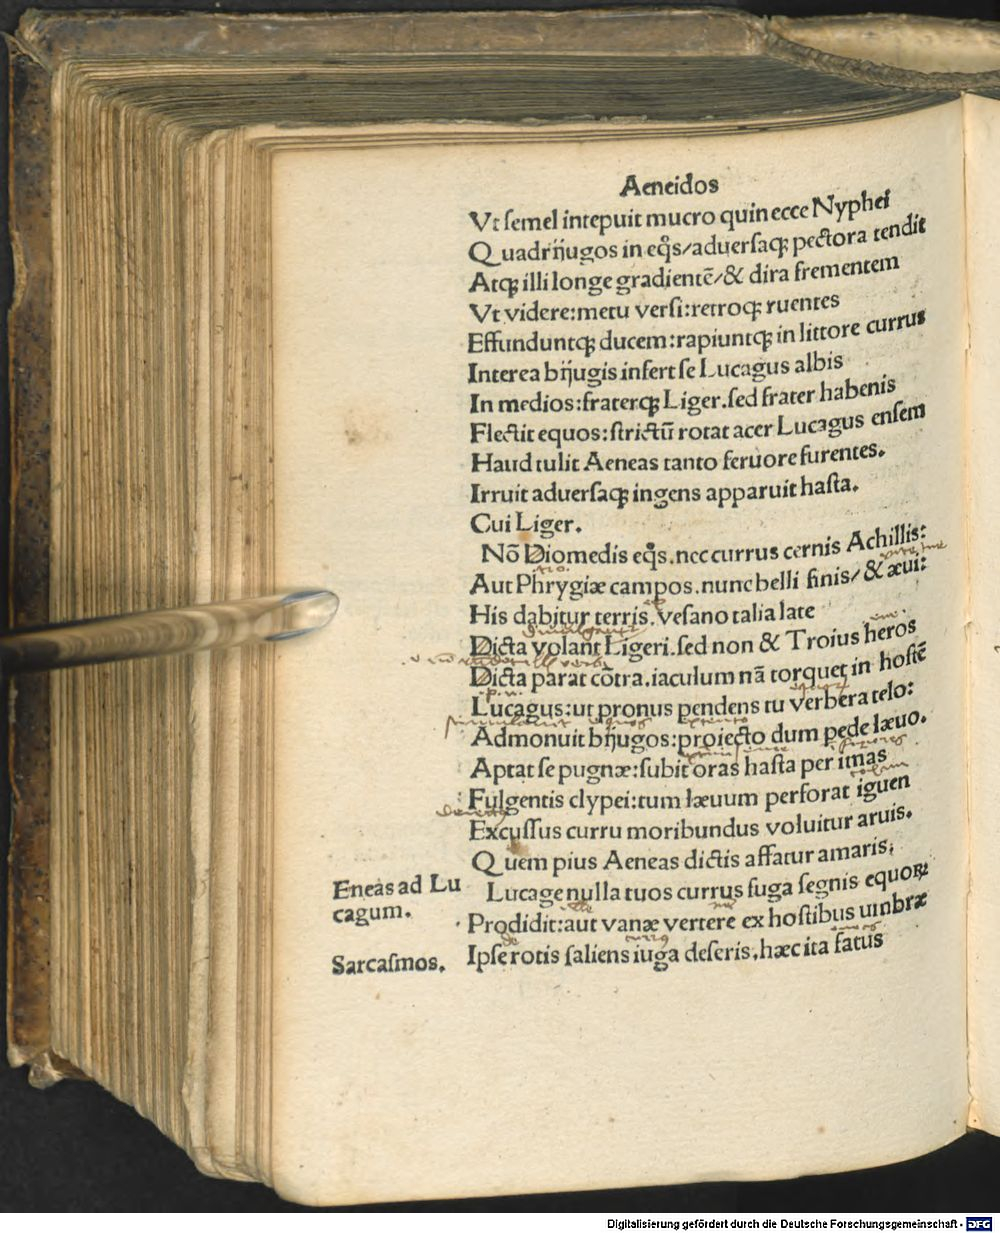 Aeneidos
Vt semel intepuit mucro quin ecce Nyphei
Quadrijugos in eqͦs/aduersaqꝫ pectora tendit
Atqꝫ illi longe gradientē/& dira frementem
Vt videre:metu versi:retroqꝫ ruentes
Effunduntqꝫ ducem:rapiuntqꝫ in littore currus
Interea bijugis infert se Lucagus albis
In medios:fraterqꝫ Liger.sed frater habenis
Flectit equos:strictū rotat acer Lucagus ensem
Haud tulit Aeneas tanto feruore furentes.
Irruit aduersaqꝫ ingens apparuit hasta.
Cui Liger.
Nō Diomedis eqͦs.nec currus cernis Achillis:
Aut Phrygiæ campos.nunc belli finis/& æui:
His dabitur terris.vesano talia late
Dicta volant Ligeri.sed non & Troius heros
Dicta parat cōtra.iaculum nā torquet in hostē
Lucagus:ut pronus pendens in verbera telo:
Admonuit bijugos:proiecto dum pede læuo.
Aptat se pugnæ:subit oras hasta per imas
Fulgentis clypei:tum læuum perforat iguen
Excussus curru moribundus voluitur aruis.
Quem pius Aeneas dictis affatur amaris;
Eneas ad Lu
cagum.
Lucage nulla tuos currus fuga segnis equoꝝ
Prodidit:aut vanæ vertere ex hostibus umbræ
Sarcasmos.
Ipse rotis saliens iuga deseris,hæc ita fatus
Digitalisierung gefördert durch die Deutsche Forschungsgemeinschaft - DFG